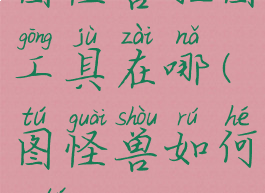 gōng jù zài nǎ
工具在哪(
tú guài shòu rú hé
图怪兽如何